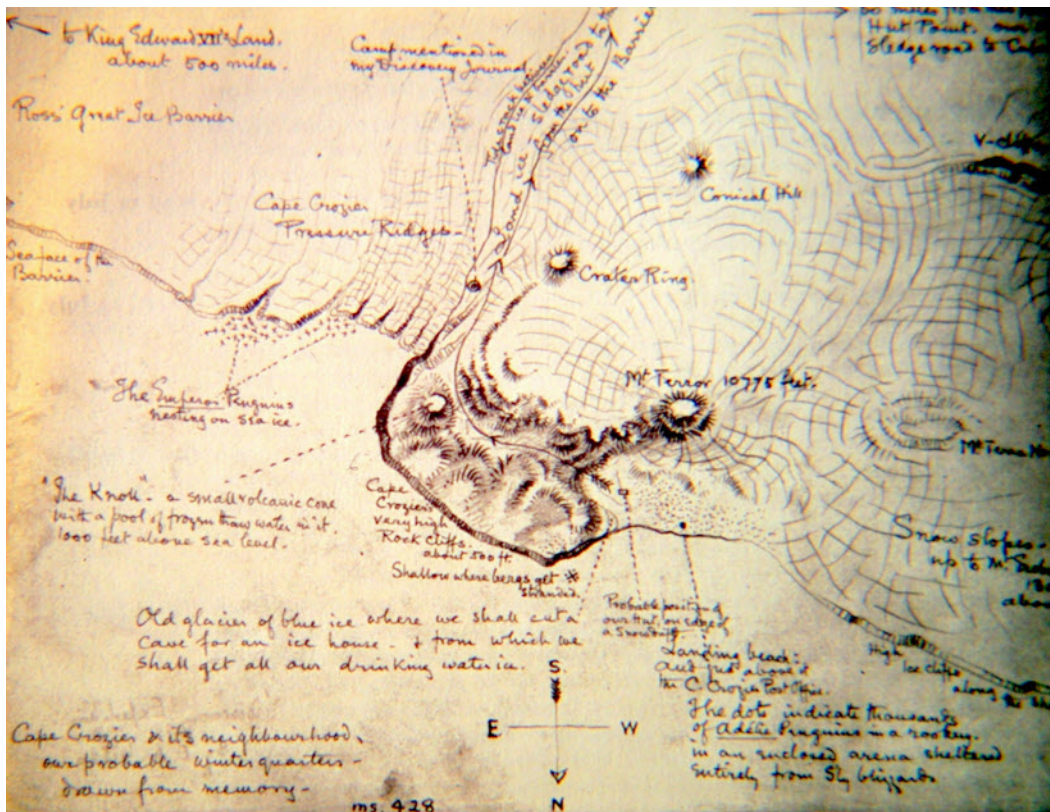 to King Edward VII's Land.
about 500 miles.
Ross' Great Ice Barrier
Camp mentioned in
my Discovery Journal
land ice & barrier
Sledge road to
Land ice from the hut
on to the Barrier
Hut Point.
Sledge road to
Conical Hill
Crater Ring.
Cape Crozier
Pressure Ridges
Sea face of the
Barrier.
The Emperor Penguins
nesting on sea ice.
Mt Terror 10775 feet.
Mt Terra
"The Knoll" - a small volcanic cone
with a pool of frozen thaw water in it.
1000 feet above sea level.
Cape
Crozier
very high
Rock Cliffs.
about 500 ft.
Shallow where bergs get
stranded.
Snow slopes
up to Mt
Old glacier of blue ice where we shall cut a
cave for an ice house. & from which we
shall get all our drinking water ice.
Probable position of
our Hut, on edge of
a Snowdrift
Landing beach:
and just above it
the C. Crozier Post Office.
The dots indicate thousands
of Adélie Penguins in a rookery.
in an enclosed arena sheltered
entirely from Sly blizzards
High
Ice cliffs
along the
S.
E W
N
Cape Crozier & its neighbourhood,
our probable winter quarters -
drawn from memory -
ms. 428